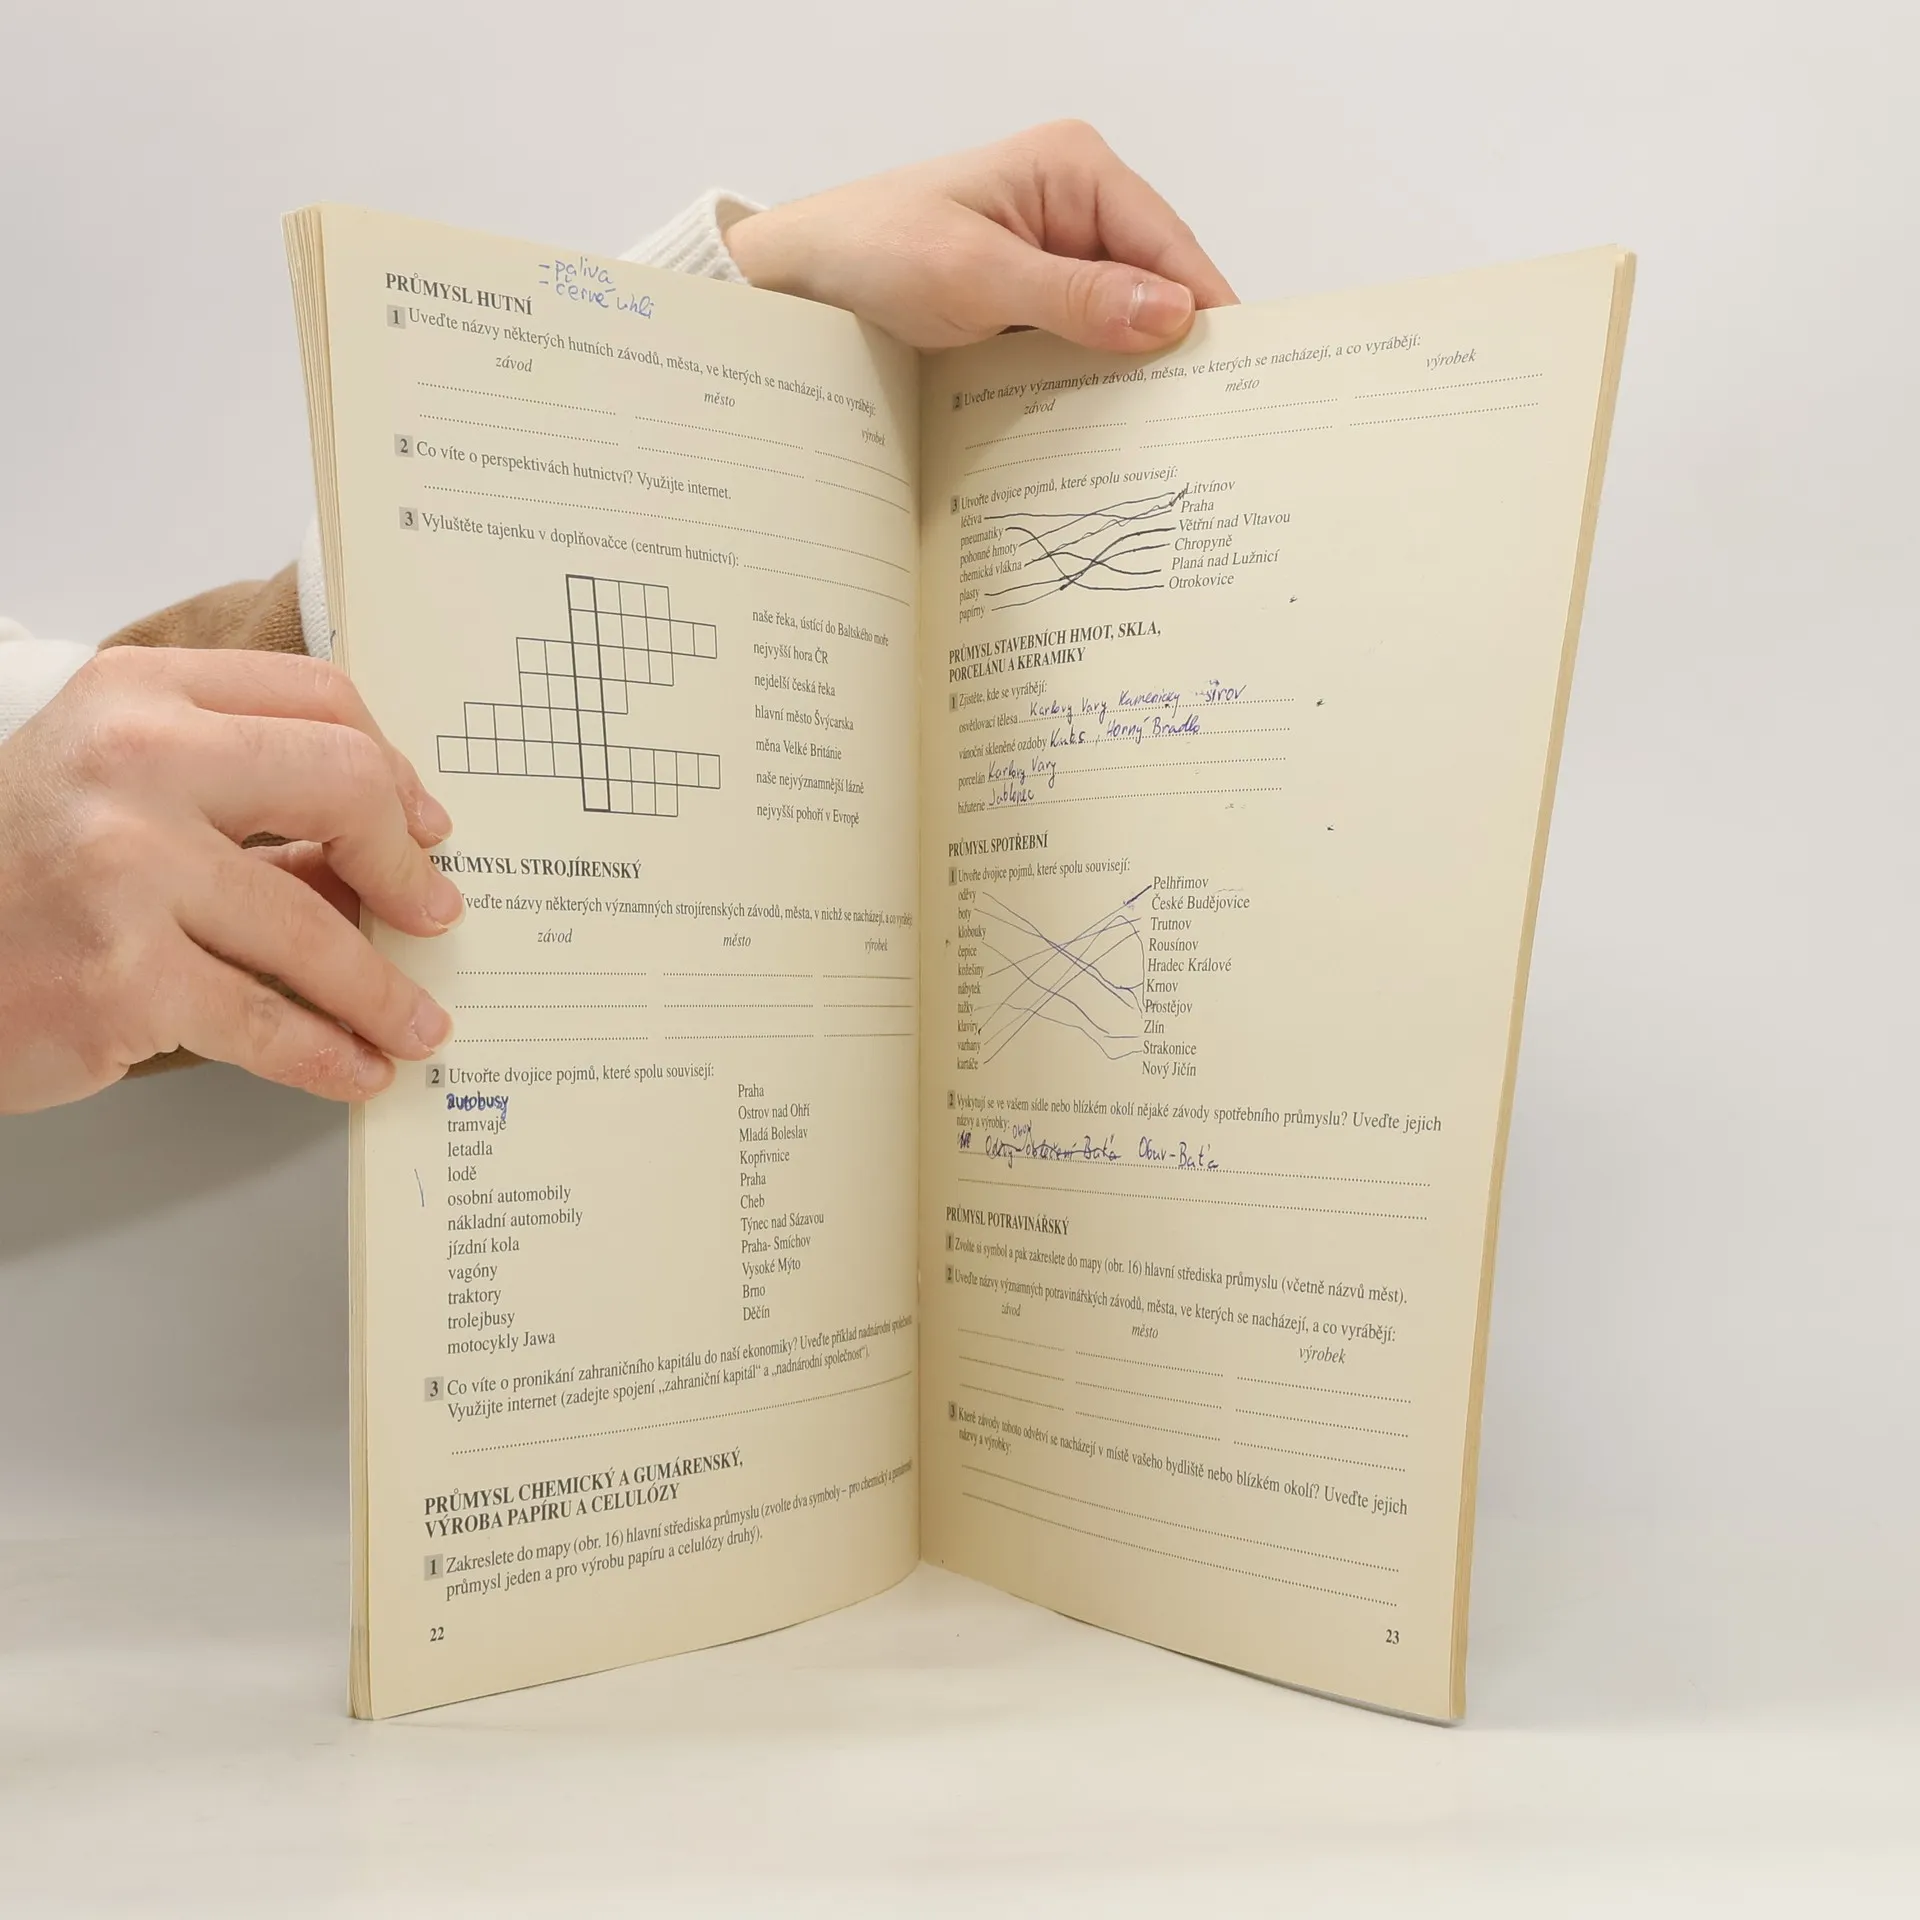 PRŮMYSL HUTNÍ
- paliva
- černé uhlí
1 Uveďte názvy některých hutních závodů, města, ve kterých se nacházejí, a co vyrábějí:
závod město výrobek
2 Co víte o perspektivách hutnictví? Využijte internet.
3 Vyluštěte tajenku v doplňovačce (centrum hutnictví):
naše řeka, ústící do Baltského moře
nejvyšší hora ČR
nejdelší česká řeka
hlavní město Švýcarska
měna Velké Británie
naše nejvýznamnější lázně
nejvyšší pohoří v Evropě
PRŮMYSL STROJÍRENSKÝ
Uveďte názvy některých významných strojírenských závodů, města, v nichž se nacházejí, a co vyrábějí
závod město výrobek
2 Utvořte dvojice pojmů, které spolu souvisejí:
autobusy Praha
tramvaje Ostrov nad Ohří
letadla Mladá Boleslav
lodě Kopřivnice
osobní automobily Praha
nákladní automobily Cheb
jízdní kola Týnec nad Sázavou
vagóny Praha- Smíchov
traktory Vysoké Mýto
trolejbusy Brno
motocykly Jawa Děčín
3 Co víte o pronikání zahraničního kapitálu do naší ekonomiky? Uveďte příklad nadnárodní společnosti.
Využijte internet (zadejte spojení „zahraniční kapitál“ a „nadnárodní společnost“).
PRŮMYSL CHEMICKÝ A GUMÁRENSKÝ,
VÝROBA PAPÍRU A CELULÓZY
1 Zakreslete do mapy (obr. 16) hlavní střediska průmyslu (zvolte dva symboly – pro chemický a gumárenský
průmysl jeden a pro výrobu papíru a celulózy druhý).
22
2 Uveďte názvy významných závodů, města, ve kterých se nacházejí, a co vyrábějí:
závod město výrobek
3 Utvořte dvojice pojmů, které spolu souvisejí:
léčiva Litvínov
pneumatiky Praha
pohonné hmoty Větřní nad Vltavou
chemická vlákna Chropyně
plasty Planá nad Lužnicí
papírny Otrokovice
PRŮMYSL STAVEBNÍCH HMOT, SKLA,
PORCELÁNU A KERAMIKY
1 Zjistěte, kde se vyrábějí:
osvětlovací tělesa Karlovy Vary Kamenický
vánoční skleněné ozdoby Horný Bradlo
porcelán Karlovy Vary
bižuterie Jablonec
PRŮMYSL SPOTŘEBNÍ
1 Utvořte dvojice pojmů, které spolu souvisejí:
oděvy Pelhřimov
boty České Budějovice
klobouky Trutnov
čepice Rousínov
kožešiny Hradec Králové
nábytek Krnov
tužky Prostějov
klavíry Zlín
varhany Strakonice
kartáče Nový Jičín
2 Vyskytují se ve vašem sídle nebo blízkém okolí nějaké závody spotřebního průmyslu? Uveďte jejich
názvy a výrobky:
Baťa Obuv-Baťa
PRŮMYSL POTRAVINÁŘSKÝ
1 Zvolte si symbol a pak zakreslete do mapy (obr. 16) hlavní střediska průmyslu (včetně názvů měst).
2 Uveďte názvy významných potravinářských závodů, města, ve kterých se nacházejí, a co vyrábějí:
závod město výrobek
3 Které závody tohoto odvětví se nacházejí v místě vašeho bydliště nebo blízkém okolí? Uveďte jejich
názvy a výrobky:
23